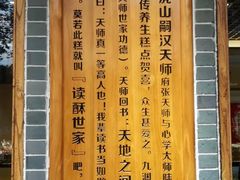 虎山嗣汉天师府张天师与心学大师陆
传养生糕点贺喜，众生甚爱之。九渊
师世家功德）。天师回书：天地之间
曰：天师真一等高人也！我辈读书当如
。莫若此糕就叫『读酥世家』吧，